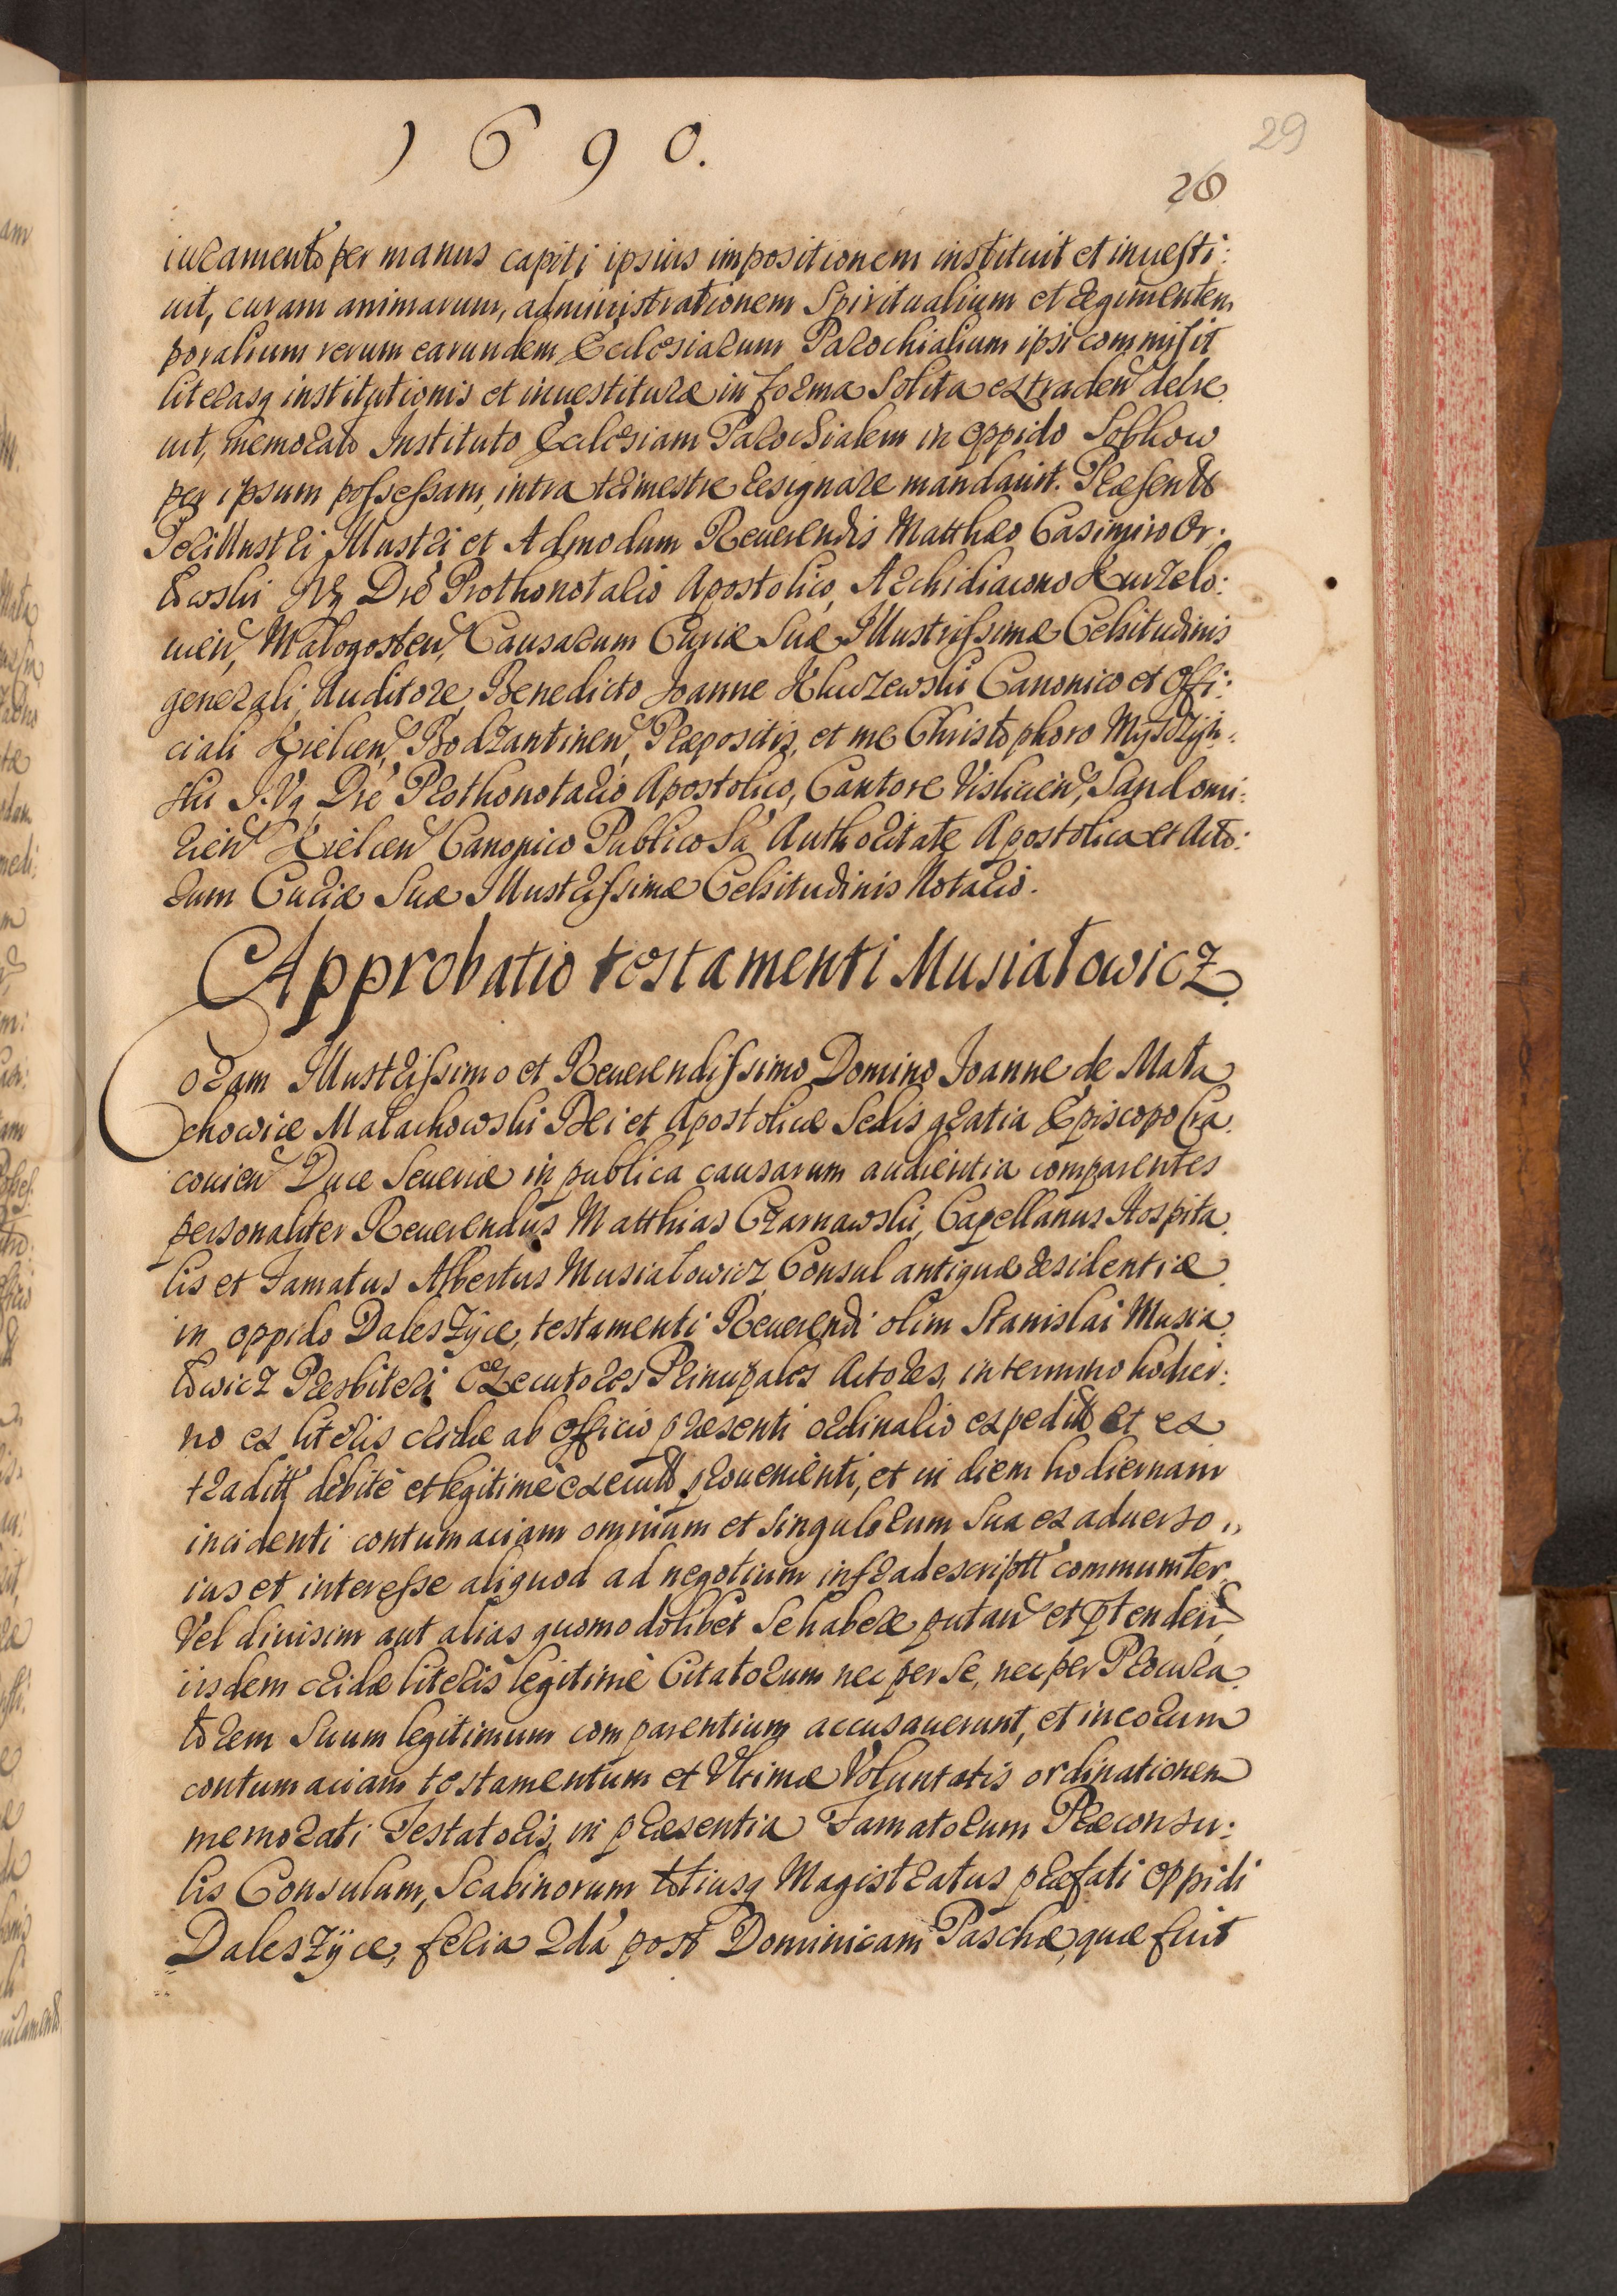 1690.
29
28
iuramento per manus capiti ipsius impositionem instituit et inuesti:
uit, curam animarum, administrationem Spiritualium et regimen tem
poralium rerum earundem Ecclesiarum Parochialium ipsi commisit
literasq institutionis et inuestituræ in forma Solita extraden decre
uit, memorato Instituto Ecclesiam Parochialem in oppido Sobkow
per ipsum possessam, intra trimestre resignare mandauit. Præsentt
Perillustri Illustri et Admodum Reuerendis Matthæo Casimiro Or:
łowski IVq Dre Prothonotario Apostolico, Archidiacono Kurzelo:
uien, Małogosten, Causarum Curiæ Suæ Illustrissimæ Celsitudinis
generali Auditore, Benedicto Joanne Kluczewski Canonico et Offi:
ciali Kielcen, Bodzantinen, Præpositis, et me Christophoro Myszyń:
ski J. Vq Dre Prothonotario Apostolico, Cantore Vislicien, Sandomi:
rien Kielcen Canonico Publico Sa Authoritate Apostolica et Acto:
rum Curiæ Suæ Illustrissimæ Celsitudinis Notario.
Approbatio testamenti Musiałowicz
Coram Illustrissimo et Reuerendissimo Domino Joanne de Mała
chowice Małachowski Dei et Apostolicæ Sedis gratia Episcopo Cra
couien Duce Seueriæ in publica causarum audientia comparentes
personaliter Reuerendus Matthias Czarnawski, Capellanus Hospita
lis et Famatus Albertus Musiałowicz Consul antiquæ residentiæ
in oppido Daleszyce, testamenti Reuerendi olim Stanislai Musia
łowicz Presbiteri Executores Principales Actores, in termino hodier:
no ex literis cridæ ab officio præsenti ordinario expeditt et ex
traditt debitè et legitimè executt prouenienti, et in diem hodiernam
incidenti contumaciam omnium et Singulorum Sua ex aduerso
ius et interesse aliquod ad negotium infradescriptt communiter
Vel diuisim aut alias quomodolibet Se habere putan et ptenden
iisdem cridæ literis legitimè Citatorum nec per Se, nec per Procura
torem Suum legitimum comparentium accusauerunt, et in eorum
contumaciam testamentum et Vltimæ Voluntatis ordinationem
memorati Testatoris, in præsentia Famatorum Præconsu:
lis Consulum, Scabinorum totiusq Magistratus præfati oppidi
Daleszyce, feria 2da post Dominicam Paschæ, quæ fuit